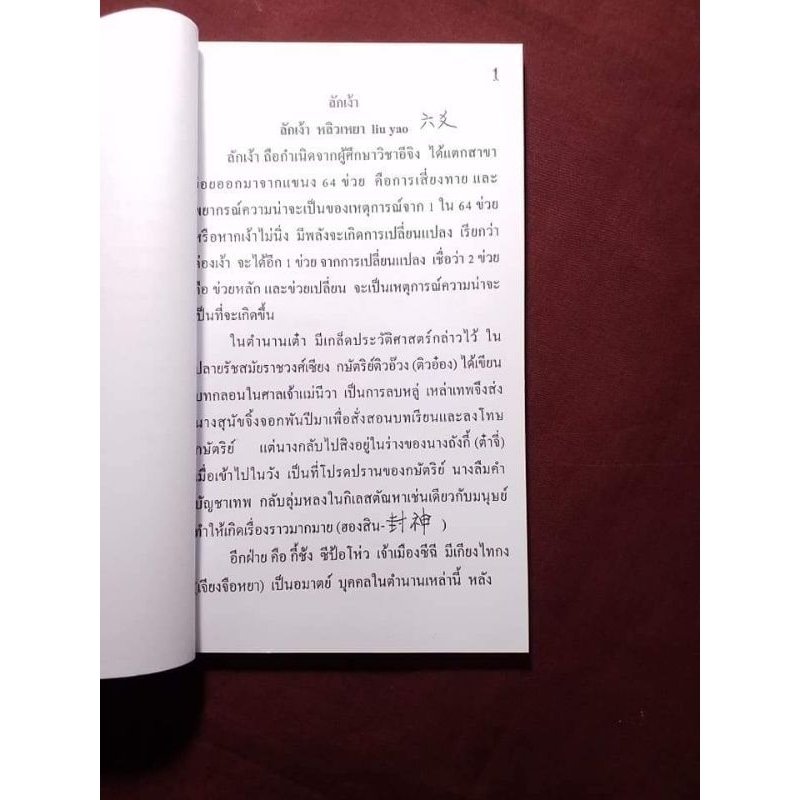 1
ลักเง้า
ลักเง้า หลิวเหยา liu yao 六爻
ลักเง้า ถือกำเนิดจากผู้ศึกษาวิชาอี้จิง ได้แตกสาขา
ย่อยออกมาจากแขนง 64 ข่วย คือการเสี่ยงทาย และ
พยากรณ์ความน่าจะเป็นของเหตุการณ์จาก 1 ใน 64 ข่วย
หรือหากเง้าไม่นิ่ง มีพลังจะเกิดการเปลี่ยนแปลง เรียกว่า
ต่องเง้า จะได้อีก 1 ข่วย จากการเปลี่ยนแปลง เชื่อว่า 2 ข่วย
คือ ข่วยหลัก และข่วยเปลี่ยน จะเป็นเหตุการณ์ความน่าจะ
เป็นที่จะเกิดขึ้น
ในตำนานเต๋า มีเกล็ดประวัติศาสตร์กล่าวไว้ ใน
ปลายรัชสมัยราชวงศ์เซียง กษัตริย์ติวอ๊วง (ติวอ๋อง) ได้เขียน
บทกลอนในศาลเจ้าแม่นีวา เป็นการลบหลู่ เหล่าเทพจึงส่ง
นางสุนัขจิ้งจอกพันปีมาเพื่อสั่งสอนบทเรียนและลงโทษ
กษัตริย์ แต่นางกลับไปสิงอยู่ในร่างของนางถังกี้ (ต๋าจี่)
เมื่อเข้าไปในวัง เป็นที่โปรดปรานของกษัตริย์ นางลืมคำ
บัญชาเทพ กลับลุ่มหลงในกิเลสตัณหาเช่นเดียวกับมนุษย์
ทำให้เกิดเรื่องราวมากมาย (ฮองสิน-封神 )
อีกฝ่าย คือ กี้ชัง ซีป้อโห่ว เจ้าเมืองซีฉี มีเกียงไทกง
(เจียงจือหยา) เป็นอมาตย์ บุคคลในตำนานเหล่านี้ หลัง